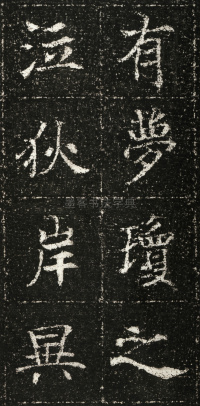 有夢瓊之
泣狄岸異